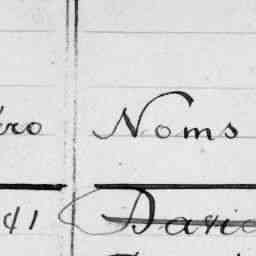 ro Noms
41 Davi